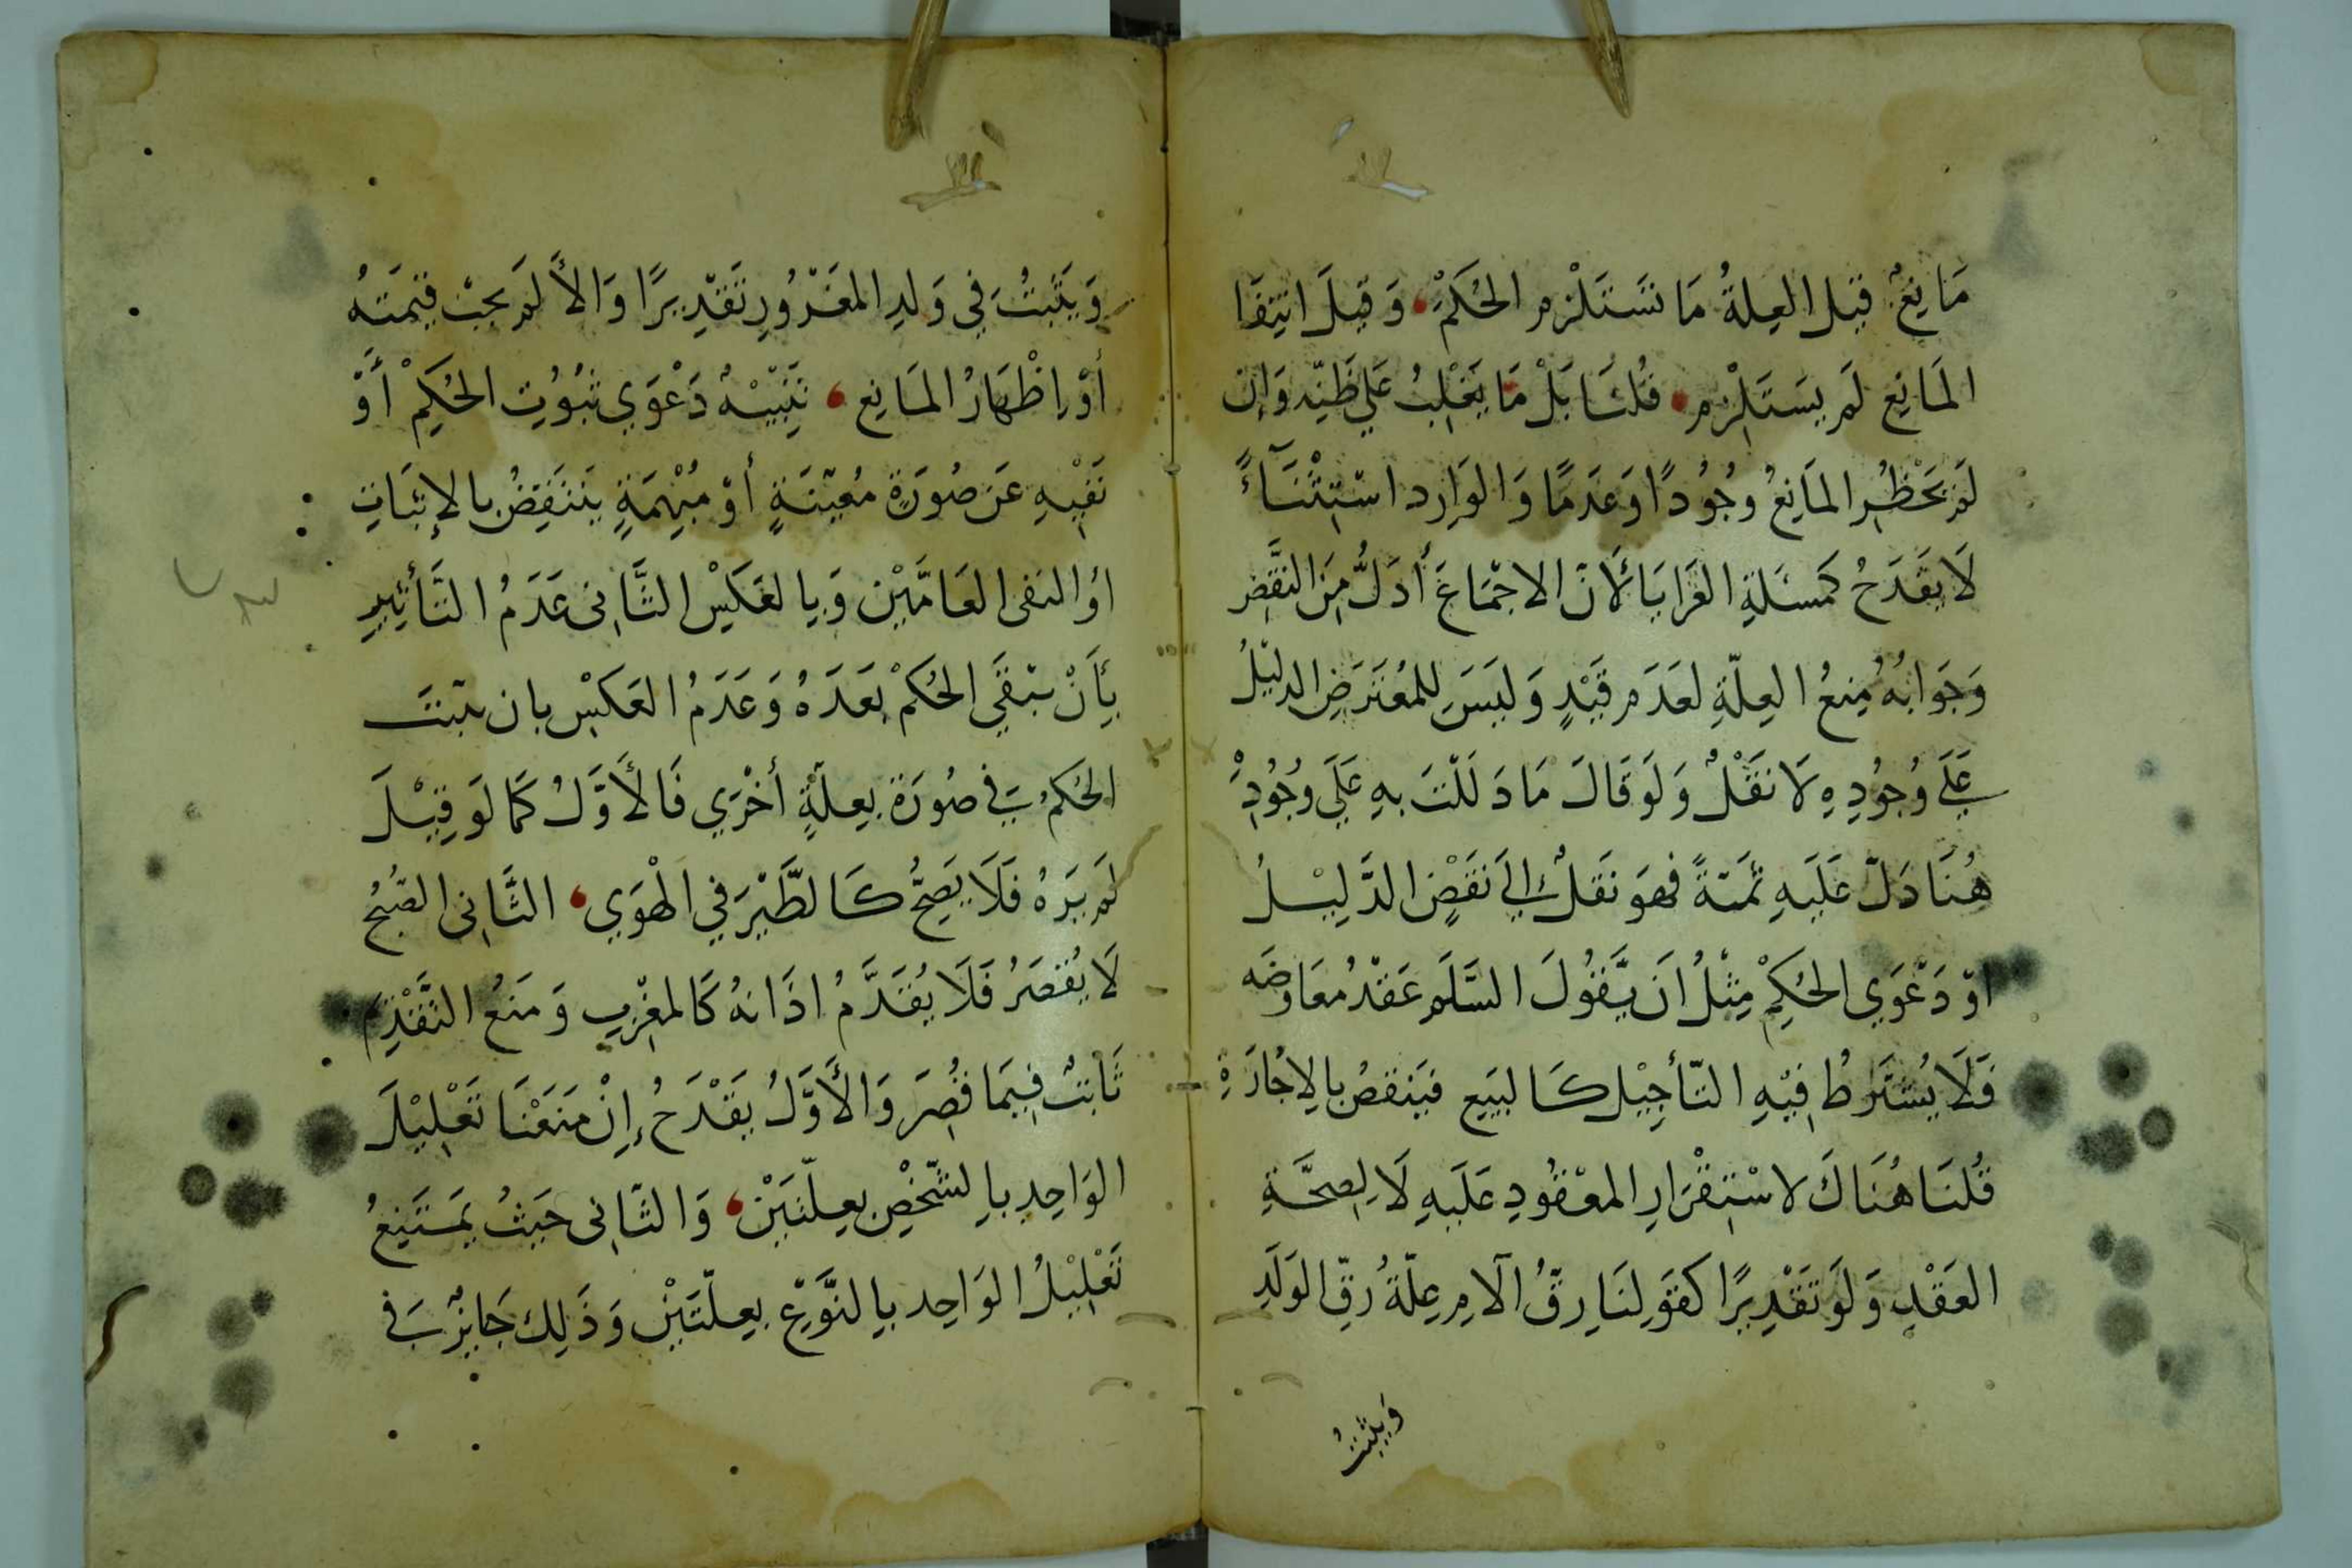 مَانِعٌ قِيْلَ العِلةُ مَا تَسْتَلْزِم الحُكْمْ، وَقيْلَ انْتِفَا
المَانِع لَم يَسْتَلْزِم، قُلنَا بَلْ مَا يَغْلِبُ عَلي ظَنِّه وَإن
لَمْ يَخْطُرِ المَانِعُ وجُوُدًا وَعَدَمًا وَالوَارِد اسْتِثْنَآءً
لَا يَقْدَحُ كَمسْئَلةِ العَرَايَا لأنَّ الاجْمَاعَ أدَلُّ مِنَ النَّقْضِ
وَجَوَابُهُ مَنعُ العِلّةِ لعَدَم قَيْدٍ وَليَسَ لِلمُعْتَرضِ الدلِيْلُ
عَلَى وُجُودِهِ لَا نَقْلٌ وَلَو قَالَ مَا دَلَلْتَ بهِ عَلَى وُجُودِهِ
هُنَا دَلّ عَلَيهِ ثَمَّةً فَهوَ نَقلٌ إلىَ نَقضِ الدَّلِيْلُ
اوْ دَعْوَي الحُكِمْ مِثْلُ انَ يَّقُولَ السَّلَم عَقْدُ مُعَاوَضَه
فَلَا يُشتَرطُ فِيْهِ التّأجِيْل كَالبَيَع فيَنقضُ بالِاجَارَةِ
قُلنَا هُنَاكَ لاسْتِقْرَارِ المعْقُودِ عَلَيهِ لَا لِصِحَّةِ
العَقْدِ وَلَو تَقْدِيرًا كقَولِنَا رِقُّ الأمِ عِلّةُ رقِّ الوَلَدِ
وَيثبتُ
وَيَثَبُتُ فِي وَلدِ المغَرُورِ تَقْدِيرًا وَالاَّ لَم يجبْ قِيْمَتهُ
أوْ اِظْهَارُ المَانِع، تَنْبِيْهٌ دَعْوَي ثبُوُتِ الحُكِمْ أوْ
نَفْيِهِ عَنَ صُورَةٍ مُعيّنَةٍ أوْ مُبْهَمَةٍ يَنتَقِضُ بِالإثبَاتِ
اوُ النَفى العَامَّيْن وَبِالعَكسْ الثَّانِى عَدَمُ التَّأثِيرِ
بِأَنْ يَبْقَي الحُكمْ بَعَدَهُ وَعَدَمُ العَكسْ بان يثبتَ
الحُكمُ فِي صُورَة بعِلّةٍ أخْرَي فَالأَوَّلُ كَمَا لَو قِيْلَ
لَم يَرَهُ فَلَا يَصِحُّ كَالطَّيْرَ في الهْوَي، الثَّانِى الصُّبْحُ
لَا يُقصَرُ فَلَا يُقَدَّمُ اذَانهُ كَالمغْرِبِ وَمَنعُ التَّقْدِيم
ثَابتٌ فِيمَا قُصِرَ وَالأَوَّلُ يَقْدَحُ إنْ مَنَعْنَا تَعْلِيْلَ
الوَاحِدِ بِالشَّخْصِ بعِلّتَيْن، وَالثَّانِى حَيثُ يَمتَنِعُ
تَعْلِيْلُ الوَاحِد بِالنَّوْعِ بعِلّتَيْن وَذَلِك جَايِزٌ فِي